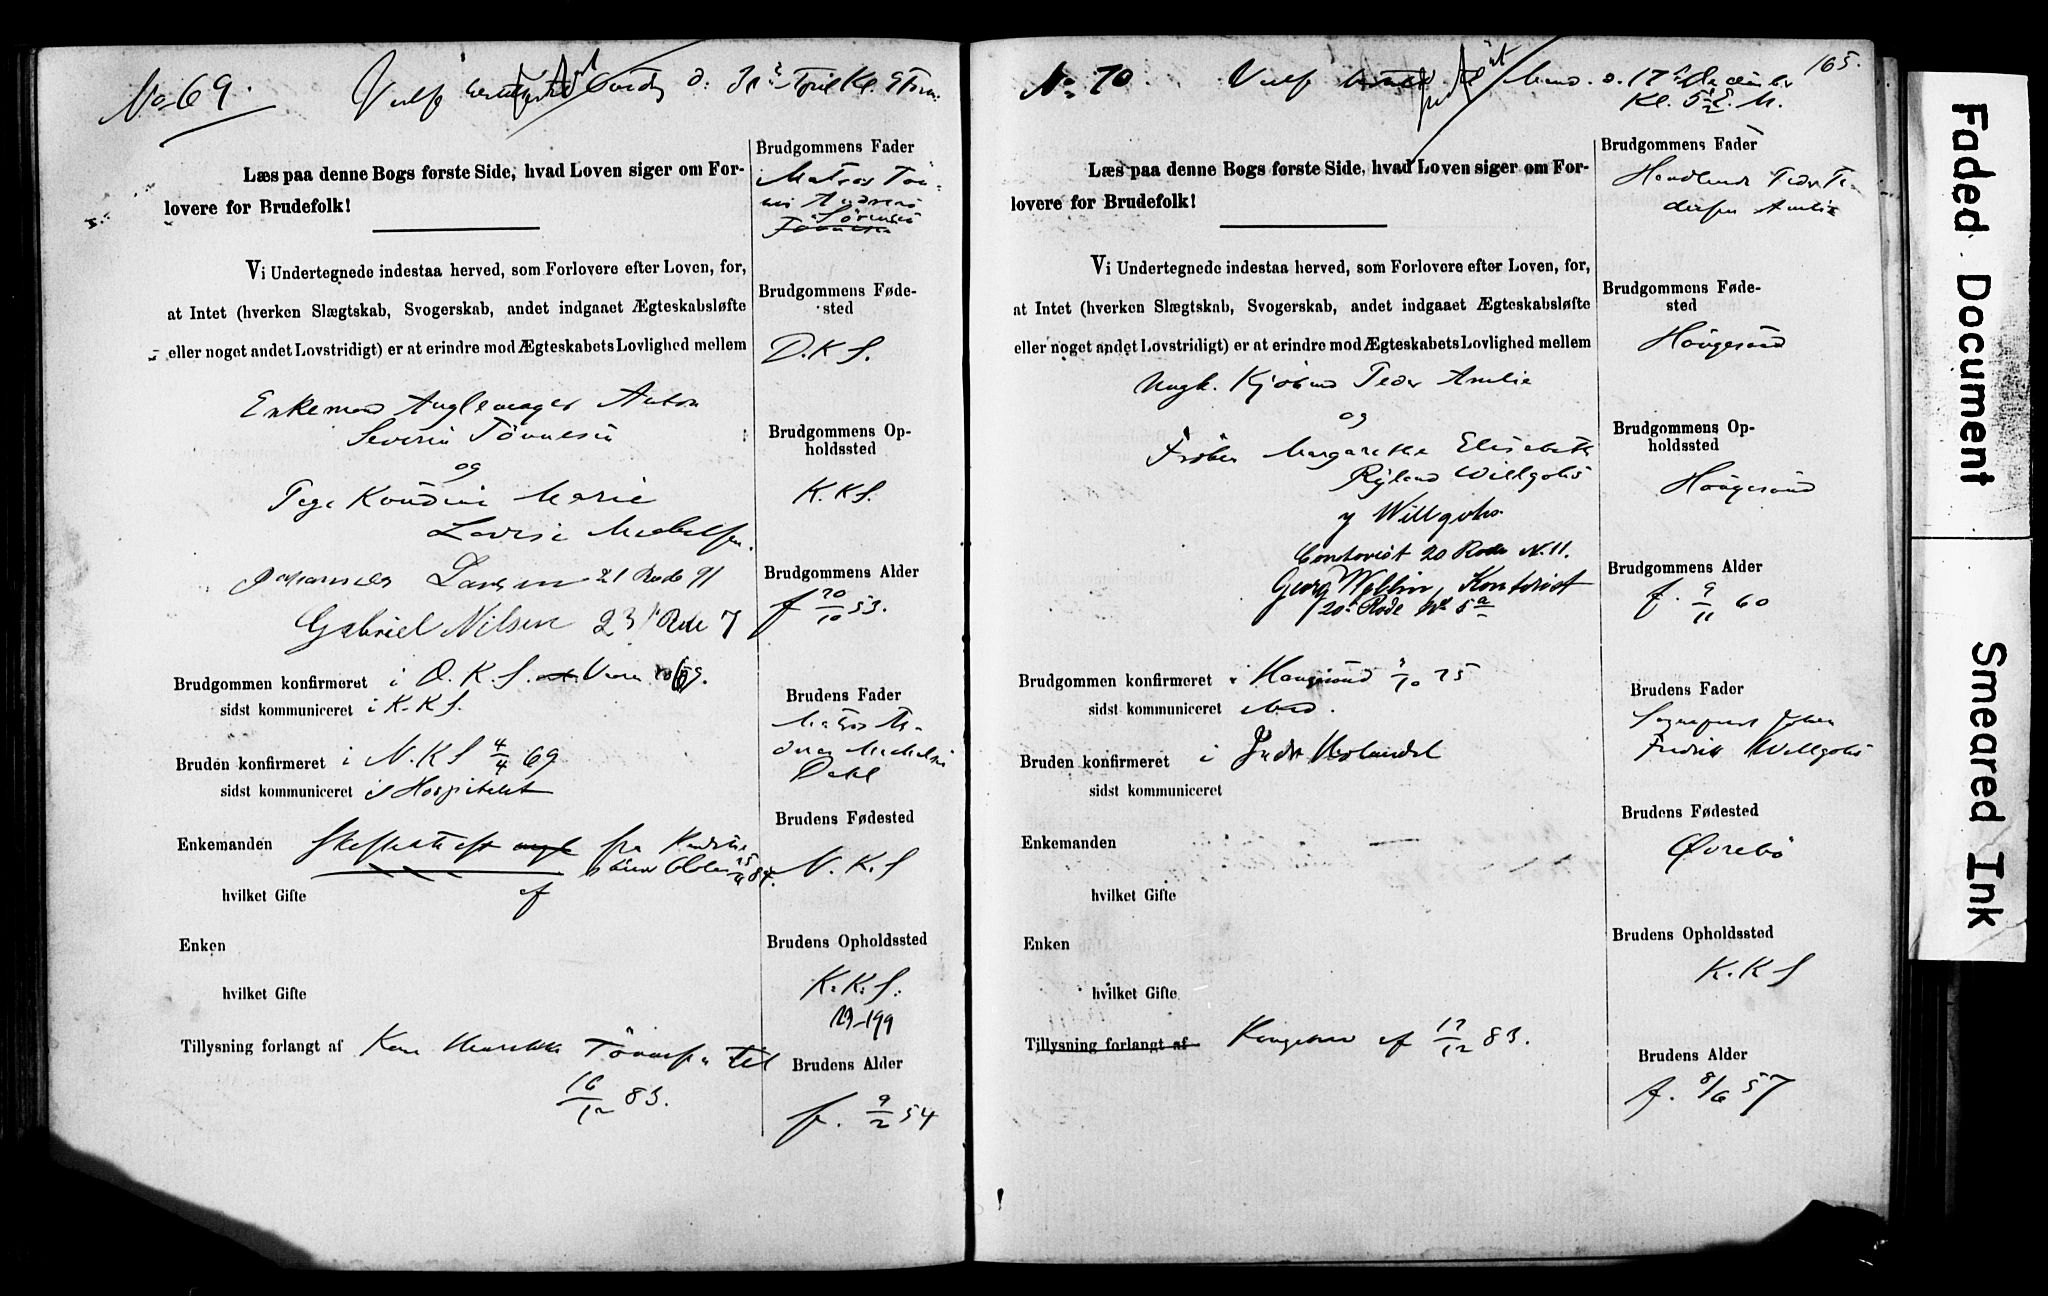 No 69.
Læs paa denne Bogs første Side, hvad Loven siger om For-
lovere for Brudefolk!
Vi Undertegnede indestaa herved, som Forlovere efter Loven, for,
at Intet (hverken Slægtskab, Svogerskab, andet indgaaet Ægteskabsløfte
eller noget andet Lovstridigt) er at erindre mod Ægteskabets Lovlighed mellem
Enkemand Anton
Severin Tönnesen
og
Pige Marie
Lovise
Johannes Larsen 21 Rode 91
Gabriel Nilsen 23 Rode 7
Brudgommen konfirmeret i D. K. S. 69.
sidst kommuniceret i K. K. S.
Bruden konfirmeret i N. K. S 4/4 69
sidst kommuniceret i Hospitalet
Enkemanden Skifteattest fra
84.
hvilket Gifte af
Enken
hvilket Gifte
Tillysning forlangt af til
16/12 83.
Brudgommens Fader
Matros Tön-
nes
Brudgommens Føde-
sted
D. K. S.
Brudgommens Op-
holdssted
K. K. S.
Brudgommens Alder
f 20/10 53.
Brudens Fader
Matros An-
dreas
Dahl
Brudens Fødested
N. K. S
Brudens Opholdssted
K. K. S.
Brudens Alder
f. 9/2 54
165.
No 70. 17 December
Kl. 5 1/2 E. M.
Læs paa denne Bogs første Side, hvad Loven siger om For-
lovere for Brudefolk!
Vi Undertegnede indestaa herved, som Forlovere efter Loven, for,
at Intet (hverken Slægtskab, Svogerskab, andet indgaaet Ægteskabsløfte
eller noget andet Lovstridigt) er at erindre mod Ægteskabets Lovlighed mellem
Ungk. Kjöbmd Peder Amlie
og
Fröken Margarethe Elisabeth
Ryland Willgohs
Willgohs
Contorist 20 Rode N. 11.
Georg Wellin, Kontorist
20de Rode No 5a
Brudgommen konfirmeret i Haugesund 3/10 75
sidst kommuniceret
Bruden konfirmeret i
sidst kommuniceret
Enkemanden
hvilket Gifte
Enken
hvilket Gifte
Tillysning forlangt af Kongebrev af 17/12 83.
Brudgommens Fader
Handlende Peder Pe-
dersen Amlie
Brudgommens Føde-
sted
Haugesund
Brudgommens Op-
holdssted
Haugesund
Brudgommens Alder
f. 9/11 60
Brudens Fader
Sogneprest Johan
Fredrik Willgohs
Brudens Fødested
Øvrebö
Brudens Opholdssted
K. K S
Brudens Alder
f. 8/6 57
Faded Document
Smeared Ink